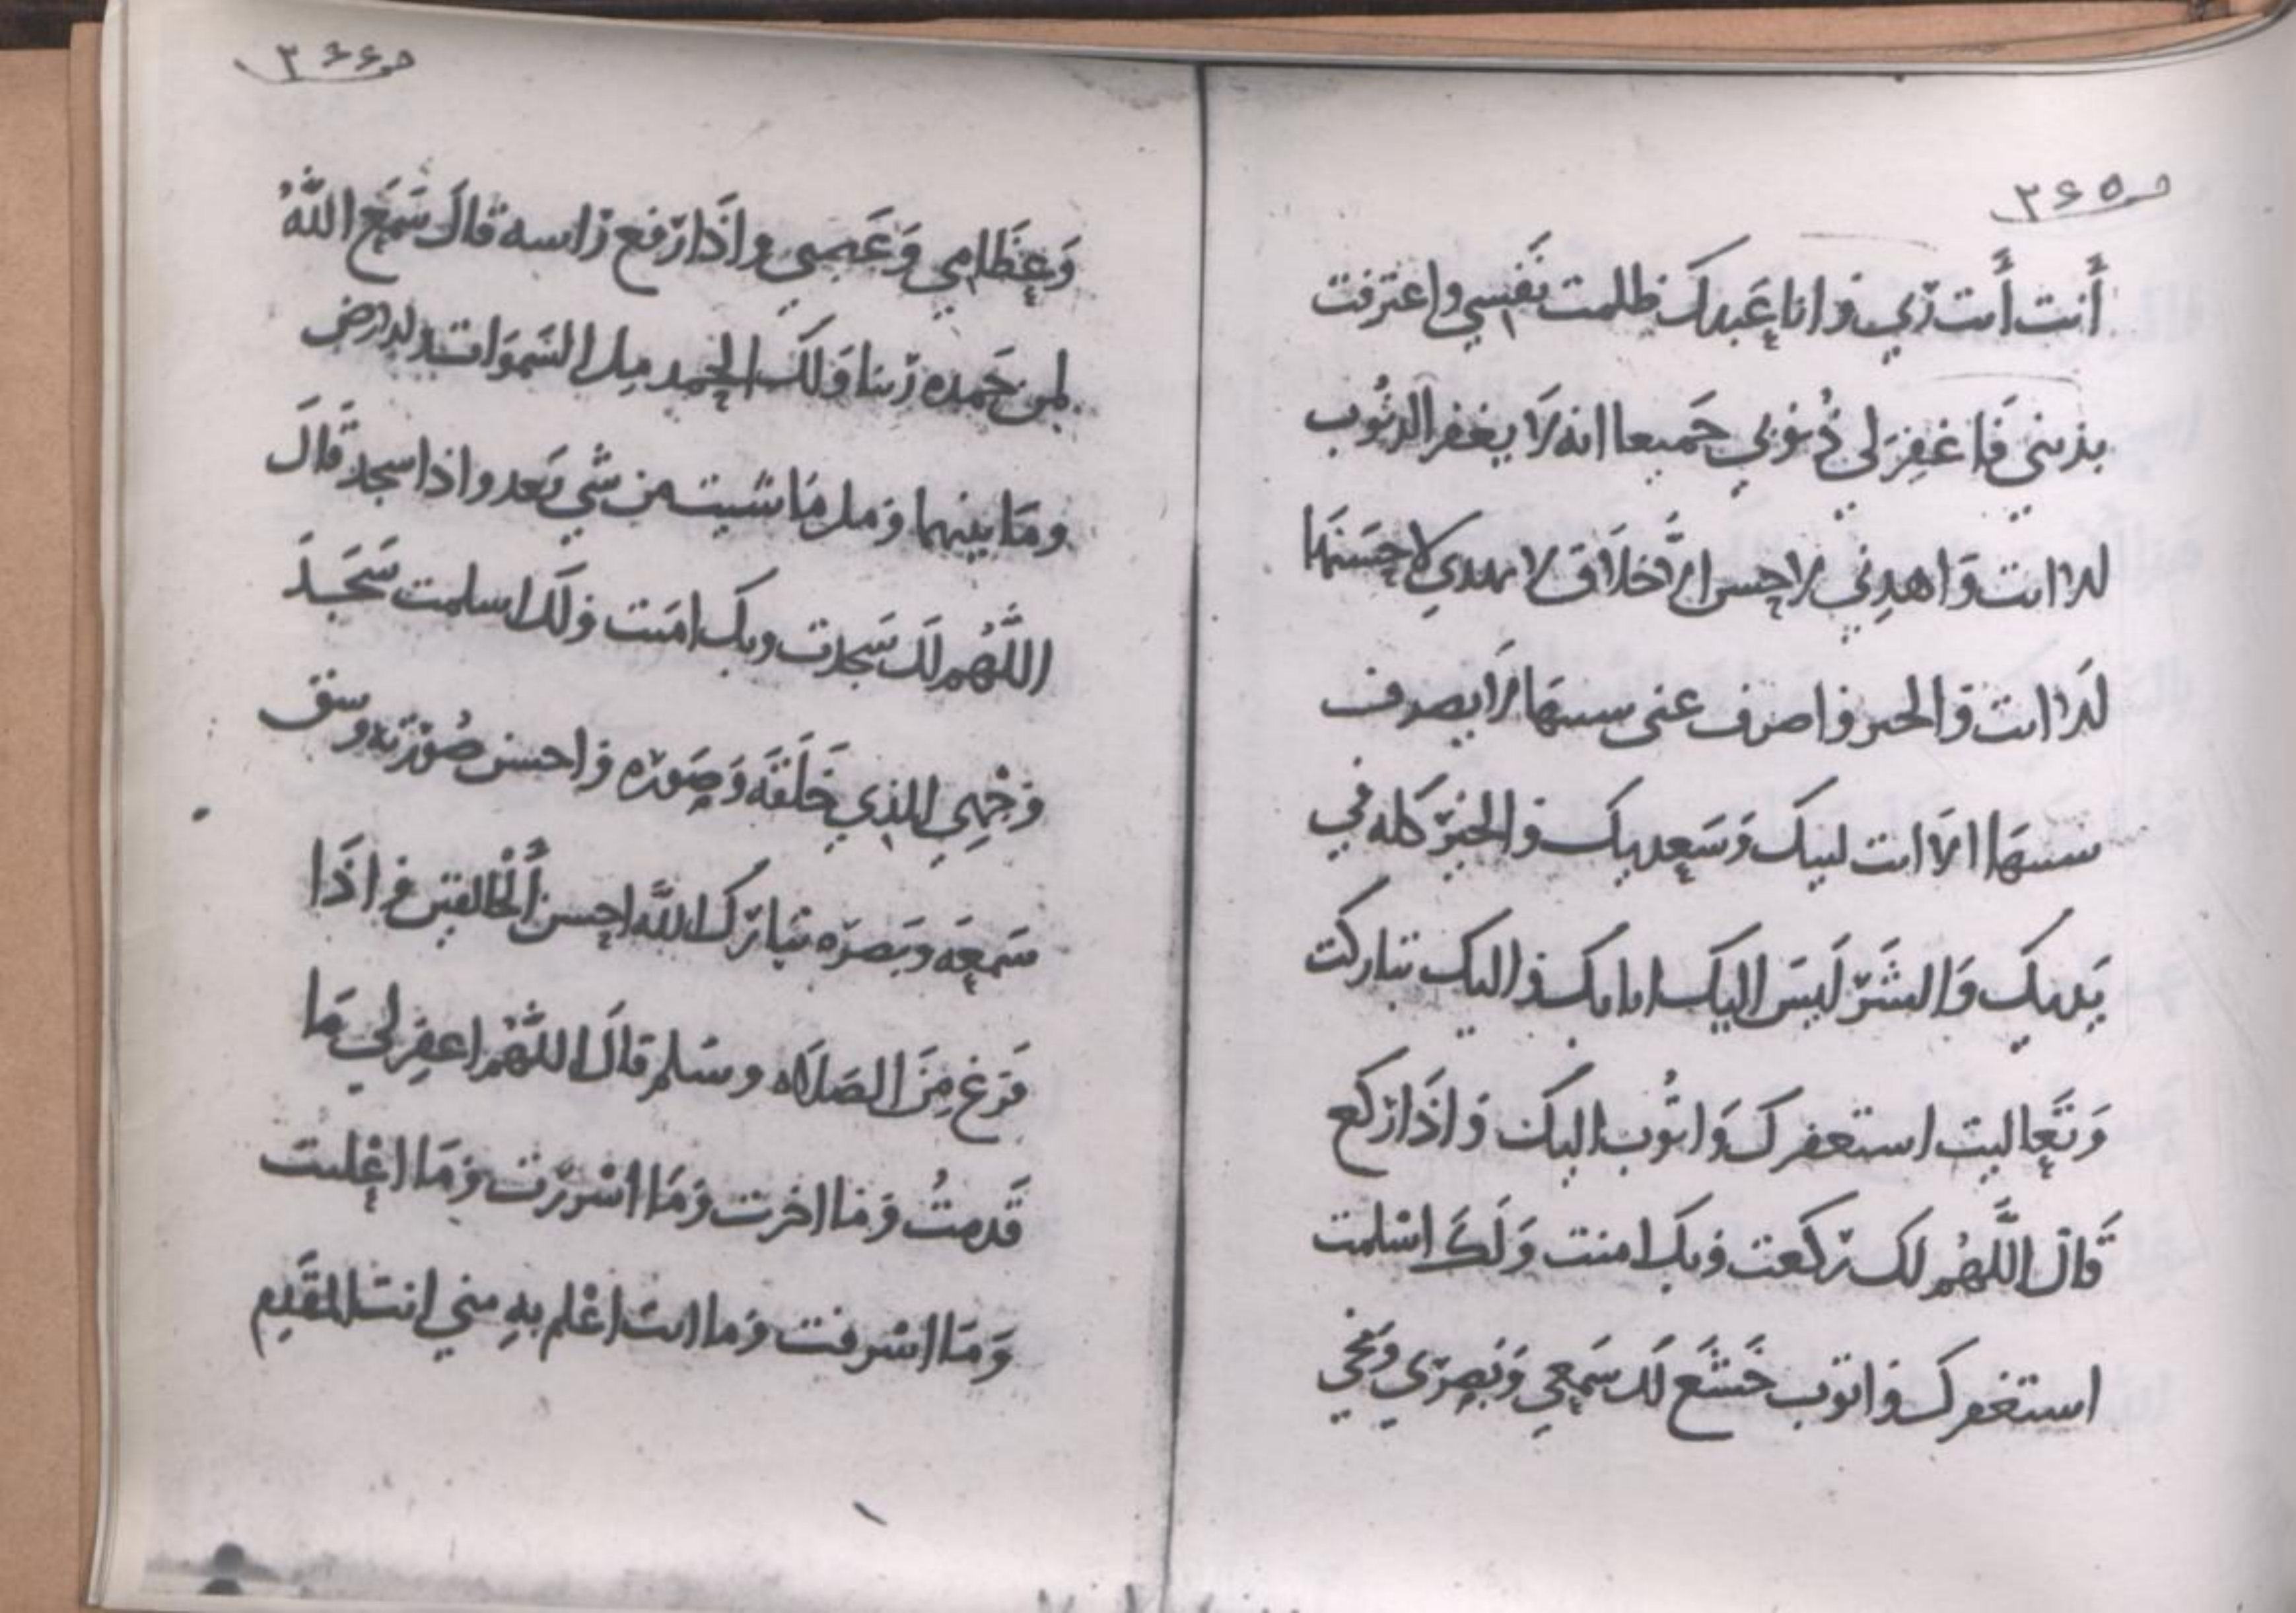 ص٣٦٥
أَنت أَنت رَبي وَانا عَبدك ظلمت نَفسي واعترفت
بذنبي فَاغفِرَ لي ذُنوُبي جَميعا انه لَا يغفر الذنُوب
الا انت وَاهدِني لاحسن الأَخلَاق لا يهدي لاحسَنهَا
الَا انت وَالخير واصرف عني سيئهَا لَا يصرف
سيئهَا الا انت لبيك وَسَعديك والخيرَ كله في
يَديك وَالشَرّ لَيسَ اليك انا بك واليك تباركت
وَتَعاليت استغفرك وَاتُوب اليك وَاذَا رَكع
قَال اللَّهُم لك رَكَعت وَبك امنت وَلَكَ اسْلمت
استغفرك وَاتوب خَشَع لَك سَمعي وَبَصَرَي وَمخي
ص٣٦٦
وَعِظَامِي وَعَصَبي واذَا رَفع رَاسه قَالَ سَمَع اللَّهُ
لمن حَمده رَبنا وَلَك الحمد مِلا السَموَات والارض
ومَا بينهما وَملا مَا شيت من شَي بَعد واذا سجد قَالَ
اللَّهُم لَك سَجدت وبك امَنت وَلَك اسلمت سَجَدَ
وَجْهِي الذِي خَلَقَه وَصَوَره وَاحسن صُوَرَته وشق
سَمعَه وبَصَرَه تبارَك اللَّه احسن أَلْخَالقين واذَا
فَرَغ مِنَ الصَلَاه وسَلم قَالَ اللَّهْم اغفِر لِي مَا
قَدمتُ وَمَا اخرت وَمَا اسْرَرَت وَمَا اعْلنت
وَمَا اسْرفت وَما انت اعْلم بِهِ مني انت المقَدِم